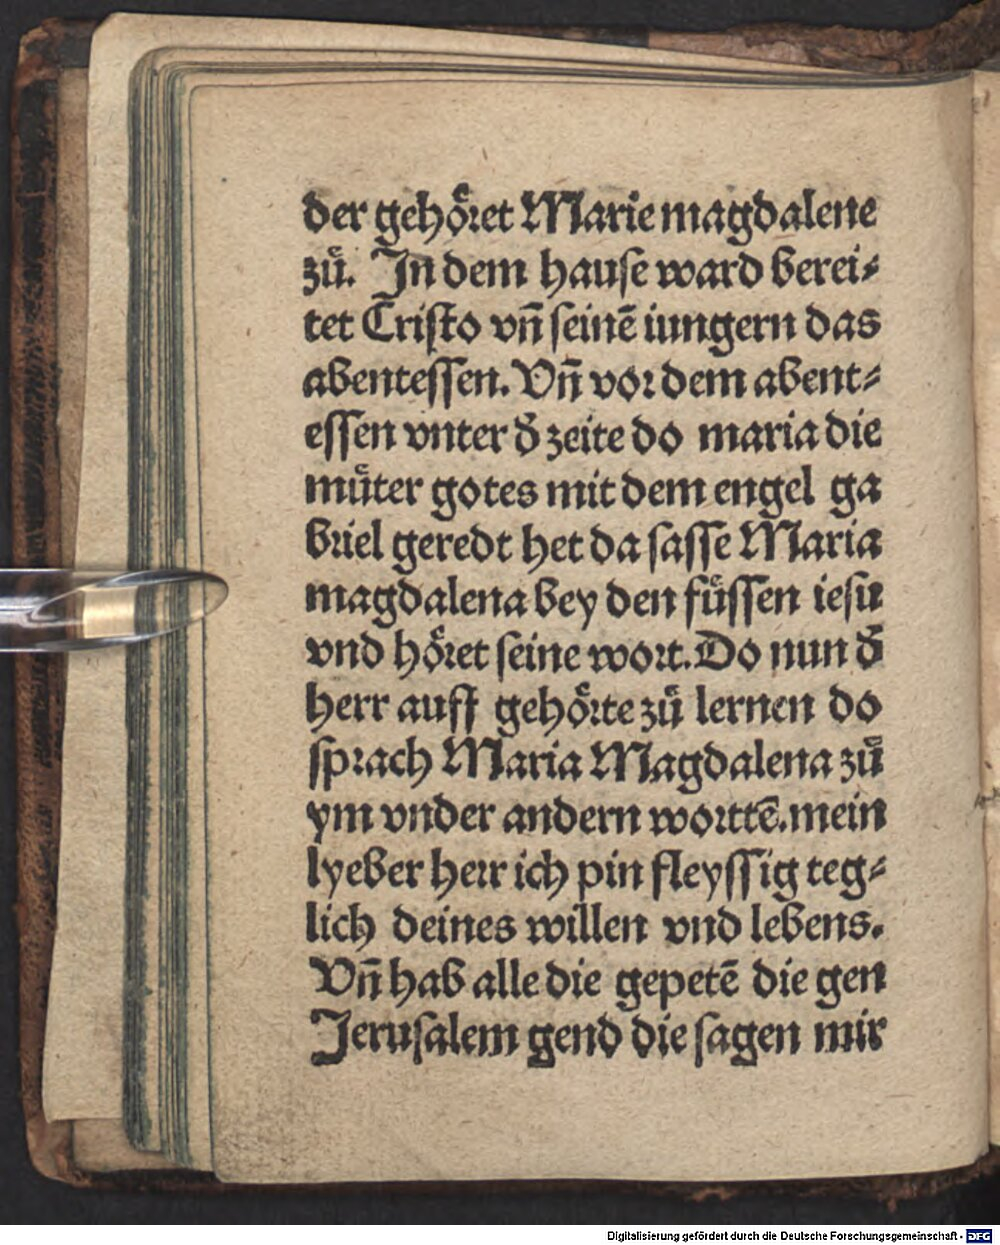 der gehoͤret Marie magdalene
zuͦ. In dem hause ward berei⸗
tet Cristo vn̄ seinē iungern das
abentessen. Vn̄ vor dem abent⸗
essen vnter đ zeite do maria die
muͤter gotes mit dem engel ga
briel geredt het da sasse Maria
magdalena bey den fuͤssen iesu
vnd hoͤret seine wort. Do nun đ
herr auff gehoͤrte zuͦ lernen do
sprach Maria Magdalena zuͦ
ym vnder andern worttē. mein
lyeber herr ich pin fleyssig teg⸗
lich deines willen vnd lebens.
Vn̄ hab alle die gepetē die gen
Jerusalem gend die sagen mir
Digitalisierung gefördert durch die Deutsche Forschungsgemeinschaft - DFG